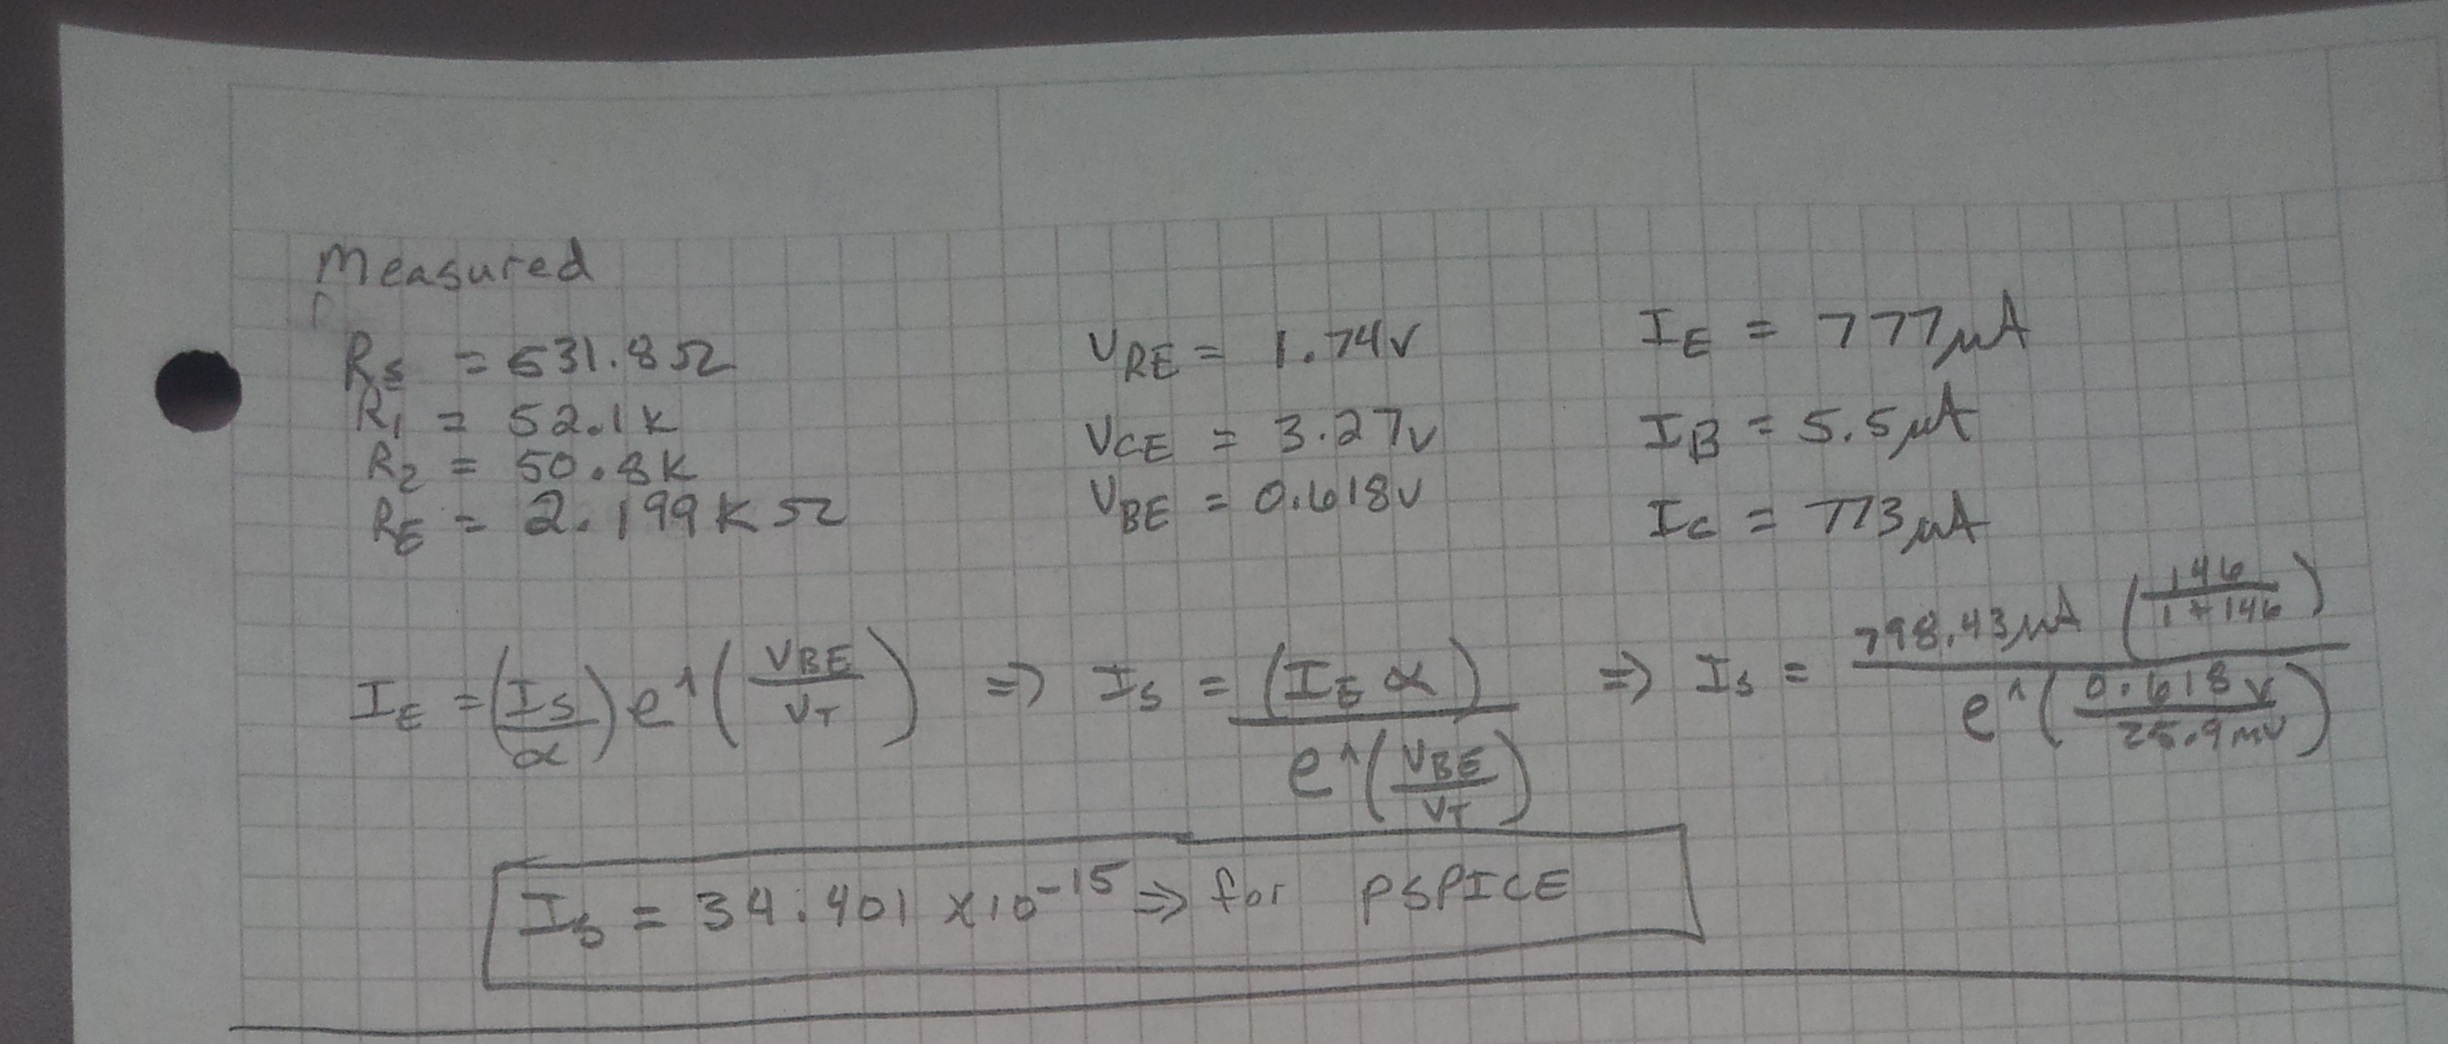 Measured
Rs = 531.8Ω
R1 = 52.1K
R2 = 50.8K
RE = 2.199KΩ
VRE = 1.74V
VCE = 3.27V
VBE = 0.618V
IE = 777μA
IB = 5.5μA
IC = 773μA
IE = (IS/α) e^(VBE/VT) => IS = (IE α)/e^(VBE/VT) => IS = 798.43μA (146/1+146)/e^(0.618V/25.9mV)
IS = 34.401 x10^-15 => for PSPICE